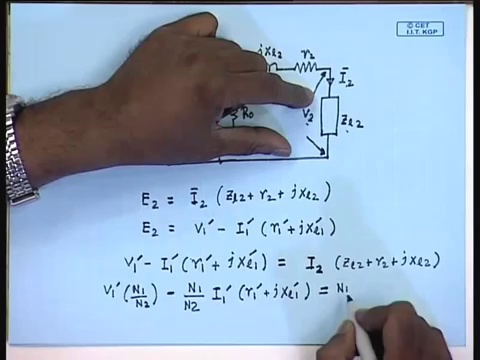 © CET
I.I.T. KGP
jxl2 r2
Ī2
R0
V2
Zl2
E2 = Ī2 (Zl2 + r2 + jxl2)
E2 = V1' - I1' (r1' + jxl1')
V1' - I1' (r1' + jxl1') = I2 (Zl2 + r2 + jxl2)
V1' (N1/N2) - N1/N2 I1' (r1' + jxl1') = N1